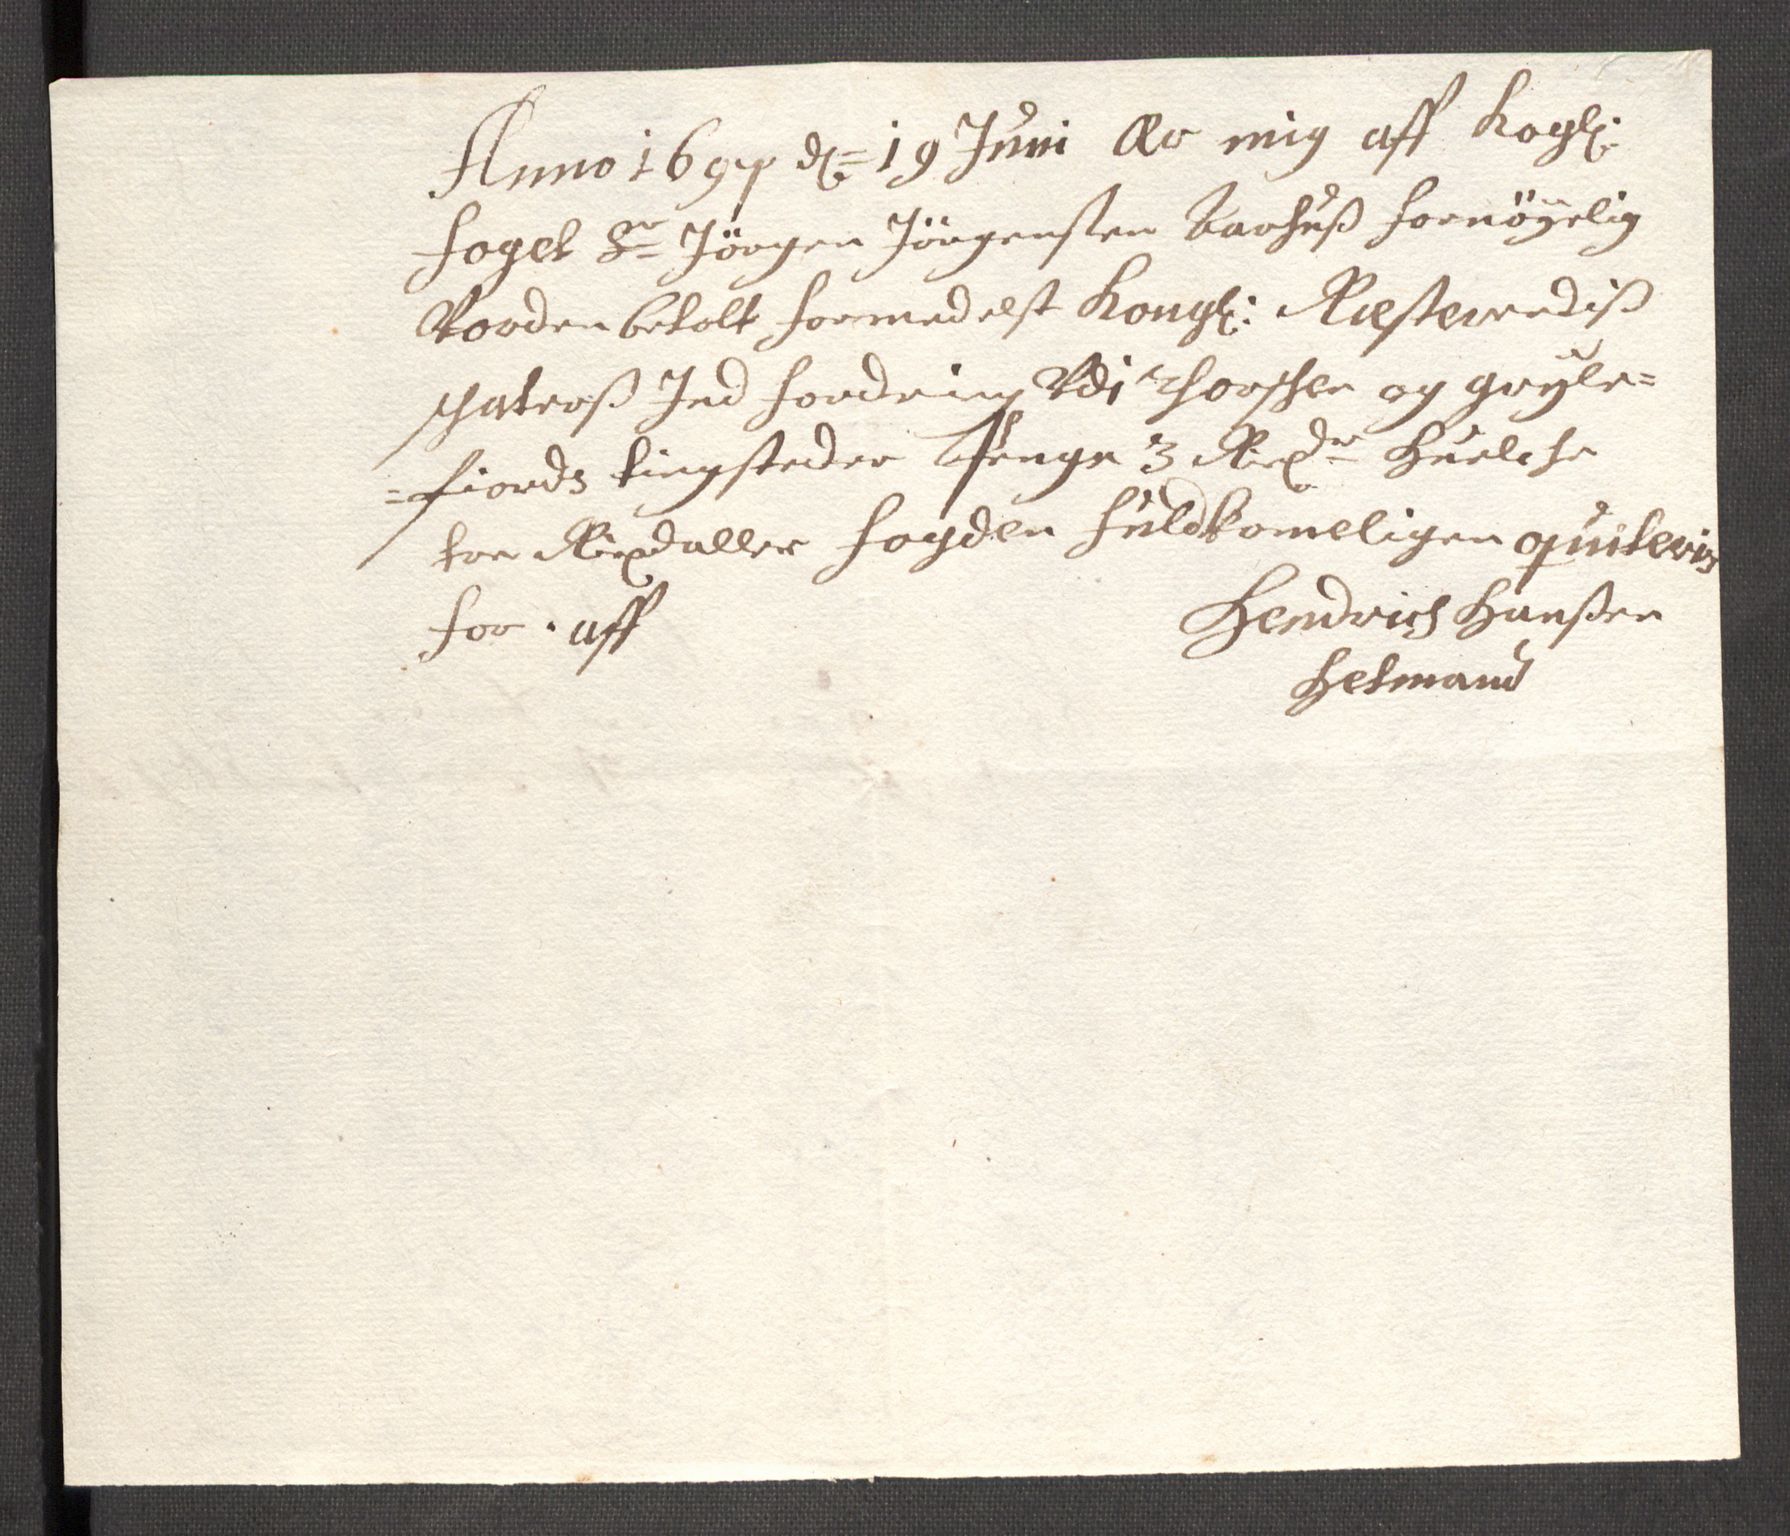 Anno 1697 d. 19 Juni Er mig aff Kogl:
foget Sr Jörgen Jörgensen Barhuß fornöyelig
Vorden betalt formedelst Kongl: Resterendiß
schaterß Ind fordring Udi Thorschen og gryle=
=fiords tingsteder Penge 3 Rixdr huelche
tre Rixdaller fogden fuldkomeligen quiteris
for. aff
Hendrich Hanßen
Hetmand